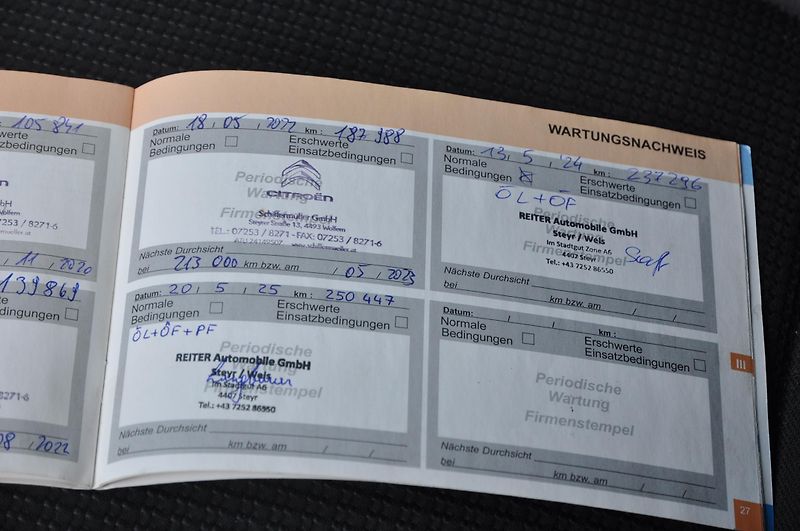 105 841
werte
tzbedingungen
bH
Wolfern
07253 / 8271-6
11 , 2020
139869
08 , 2022
WARTUNGSNACHWEIS
Datum: 18 , 05 , 2022 km : 187 988
Normale
Bedingungen
Erschwerte
Einsatzbedingungen
Periodische
Wartung
Firmenstempel
CITROËN
Schiffermüller GmbH
Steyrer Straße 13, 4493 Wolfern
TEL.: 07253 / 8271 - FAX: 07253 / 8271-6
Nächste Durchsicht
bei 213 000 km bzw. am / 05 / 2023
Datum: 13 , 5 , '24 km : 237 296
Normale
Bedingungen
Erschwerte
Einsatzbedingungen
ÖL + ÖF
Periodische
Wartung
Firmenstempel
REITER Automobile GmbH
Steyr / Weis
Im Stadtgut Zone A6
4407 Steyr
Tel.: +43 7252 86550
Nächste Durchsicht
bei km bzw. am / /
Datum: 20 , 5 , 25 km : 250 447
Normale
Bedingungen
Erschwerte
Einsatzbedingungen
ÖL+ÖF+PF
Periodische
Wartung
Firmenstempel
REITER Automobile GmbH
Steyr / Weis
Im Stadtgut A6
4407 Steyr
Tel.: +43 7252 86550
Nächste Durchsicht
bei km bzw. am / /
Datum: / / km :
Normale
Bedingungen
Erschwerte
Einsatzbedingungen
Periodische
Wartung
Firmenstempel
Nächste Durchsicht
bei km bzw. am / /
III
27